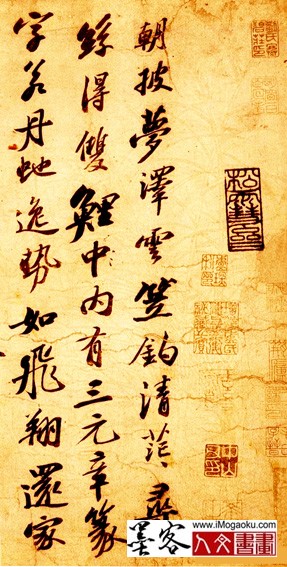 朝披夢澤雲笠釣清茫、尋
絲得雙鯉中内有三元章篆
字若丹虵逸勢如飛翔還家
www.iMogaoku.com
墨客人文書畫